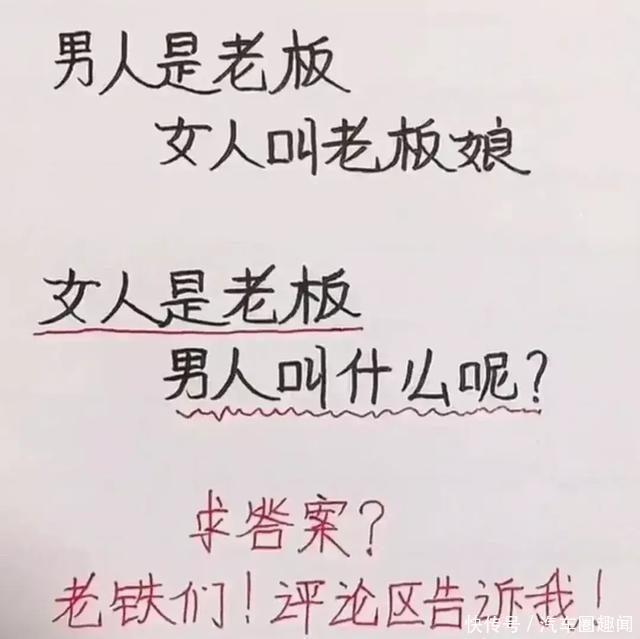 男人是老板
女人叫老板娘
女人是老板
男人叫什么呢?
求答案?
老铁们!评论区告诉我!
快传号/汽车圈趣闻